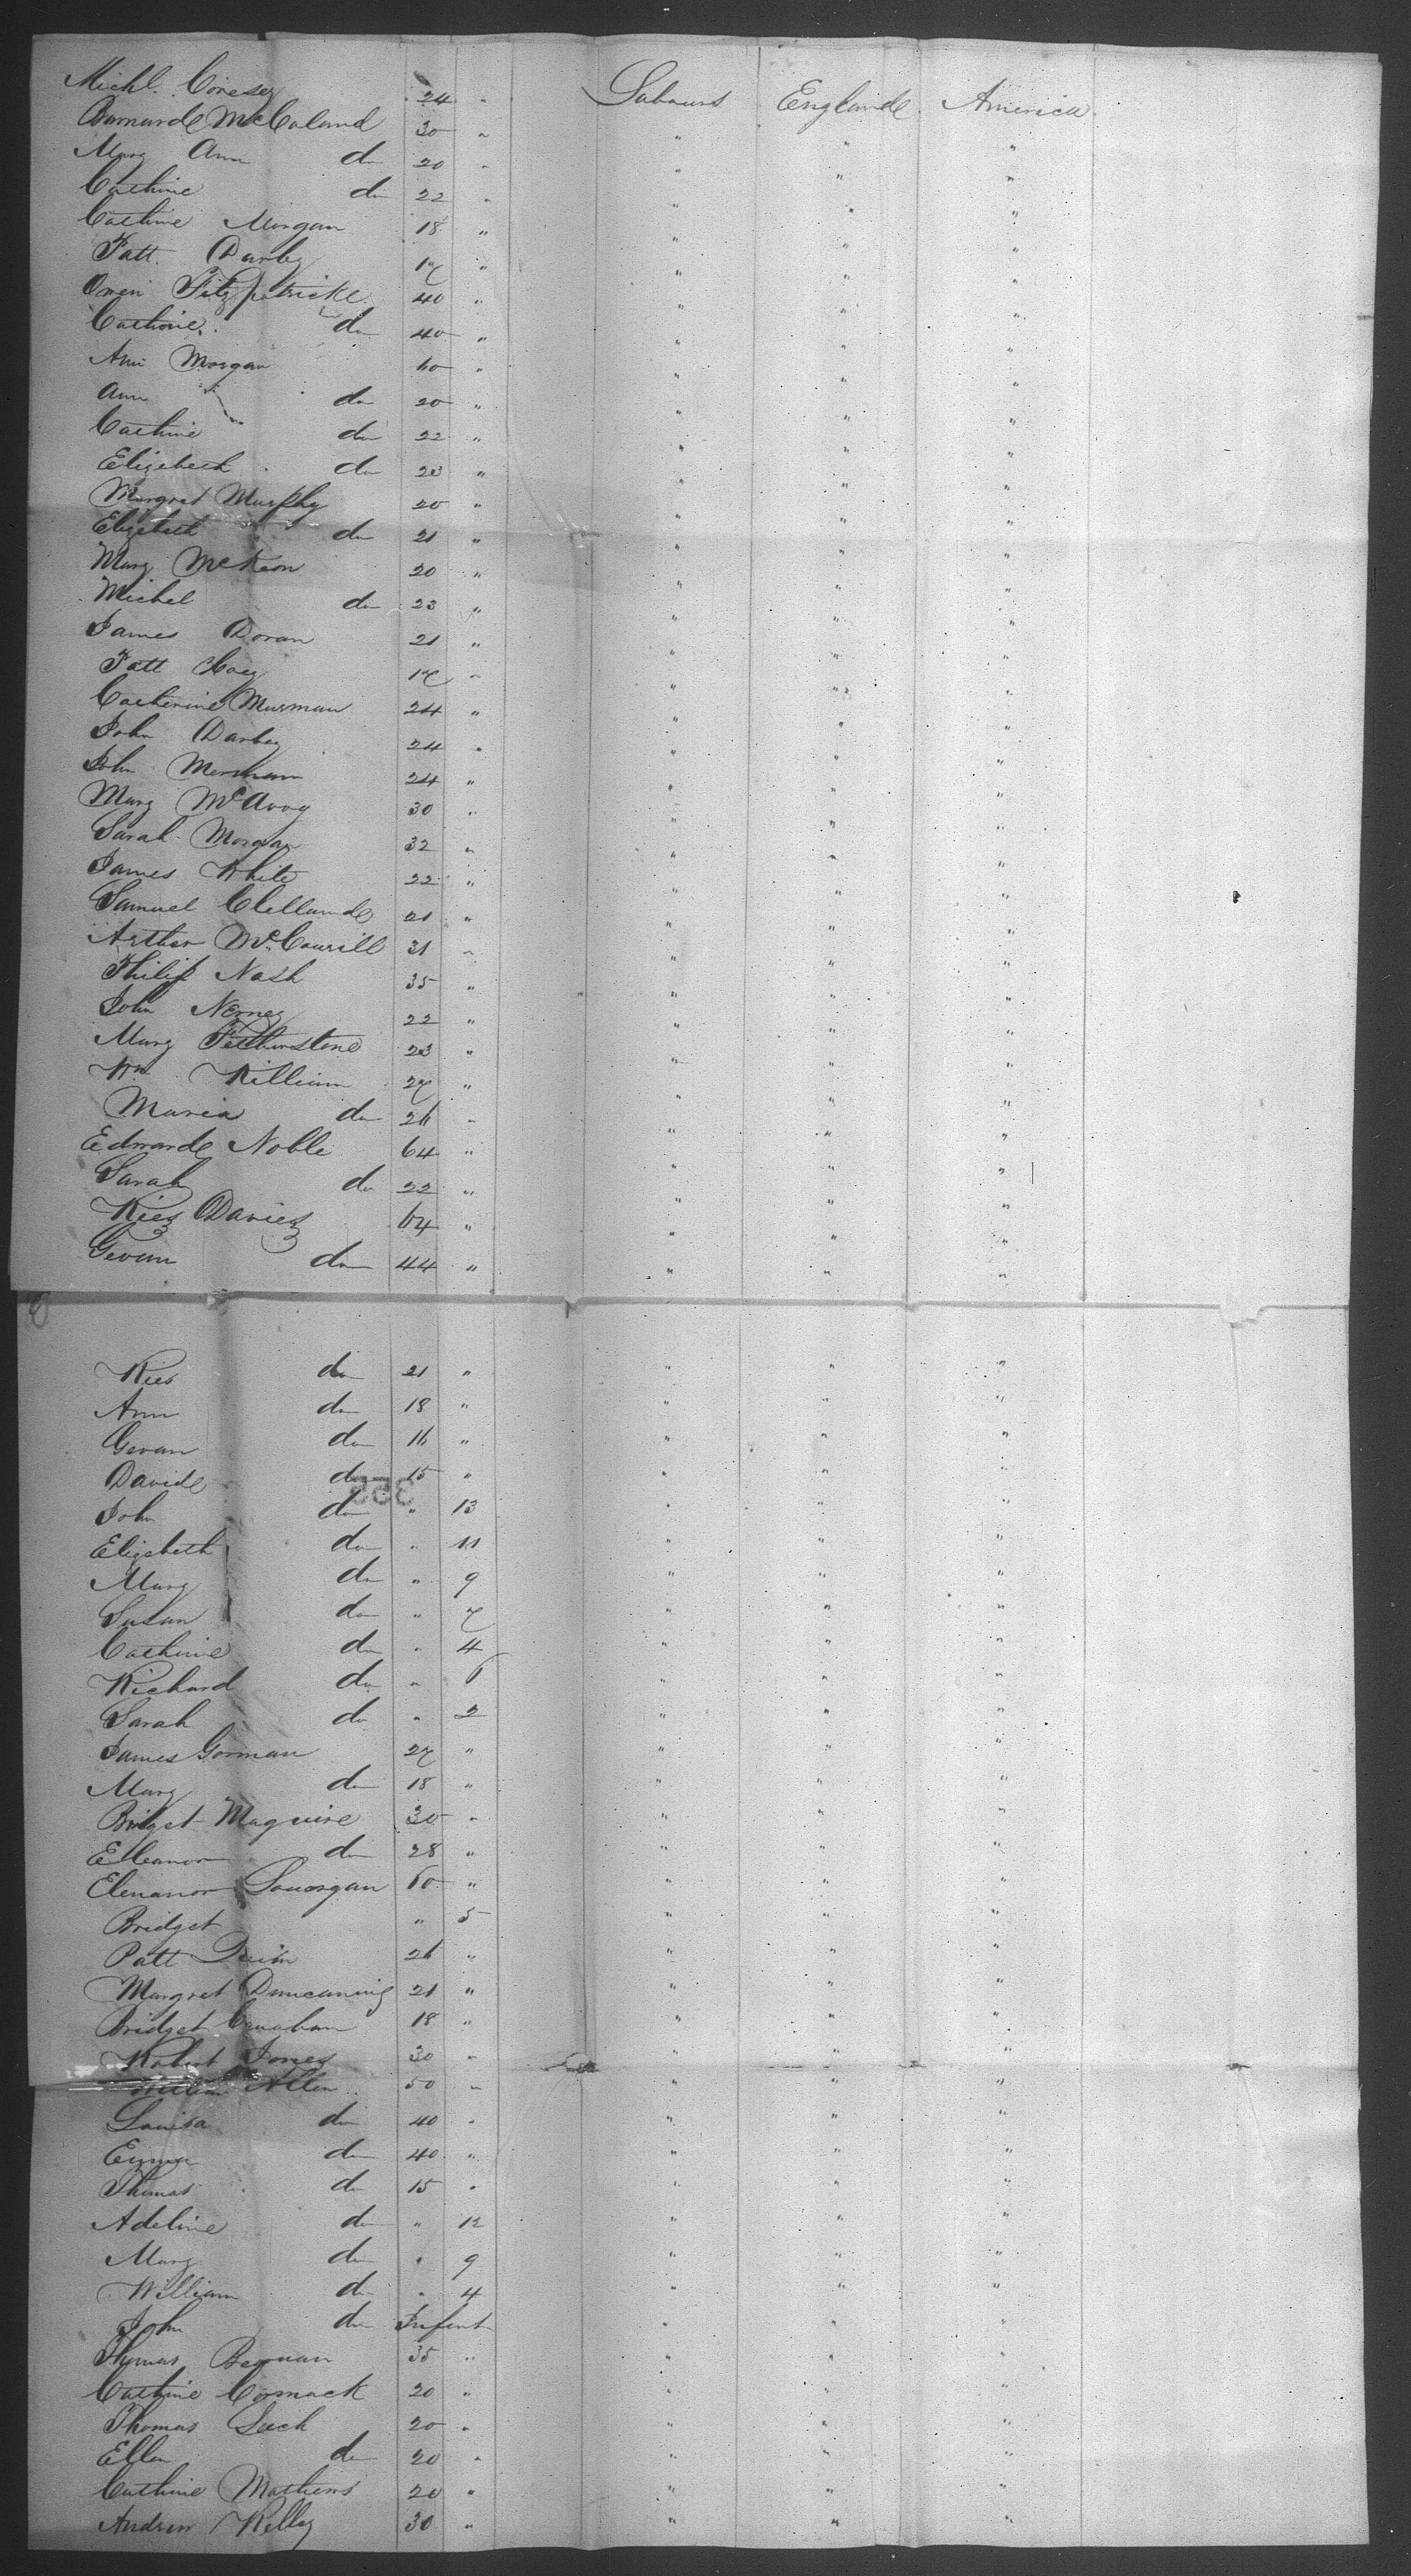 Michl. Coresey 24 " Labours England America
Barnard McCaland 30 " " " "
Mary Ann do 20 " " " "
Cathine do 22 " " " "
Cathine Morgan 18 " " " "
Patt. Darby 17 " " " "
Owen Fitzpatrick 40 " " " "
Cathine do 40 " " " "
Ann Morgan 60 " " " "
Ann do 20 " " " "
Cathine do 22 " " " "
Elizebeth do 23 " " " "
Margret Murphy 20 " " " "
Elizebeth do 21 " " " "
Mary McKeon 20 " " " "
Michel do 23 " " " "
James Doran 21 " " " "
Patt Hoey 17 " " " "
Catherine Murman 24 " " " "
John Darbey 24 " " " "
John Mernham 24 " " " "
Mary McAvoy 30 " " " "
Sarah Morgan 32 " " " "
James White 22 " " " "
Samuel Clelland 21 " " " "
Arthur McCourill 31 " " " "
Philip Nash 35 " " " "
John Nerney 22 " " " "
Mary Fetherstone 23 " " " "
Wm Killiam 27 " " " "
Maria do 26 " " " "
Edward Noble 64 " " " "
Sarah do 22 " " " "
Rees Davies 64 " " " "
Gevan do 44 " " " "
Rees do 21 " " " "
Ann do 18 " " " "
Gevan do 16 " " " "
David do 15 " " " "
John do " 13 " " "
Elizebeth do " 11 " " "
Mary do " 9 " " "
Susan do " 7 " " "
Cathine do " 4 " " "
Richard do " 6 " " "
Sarah do " 2 " " "
James Gorman 27 " " " "
Mary do 18 " " " "
Bridget Maguire 30 " " " "
Elleanor do 28 " " " "
Elenanor 60 " " " "
Bridget " 5 " " "
Patt Quin 26 " " " "
Margret 21 " " " "
Bridget Canahan 18 " " " "
Robert Jones 30 " " " "
William Allen 50 " " " "
Louisa do 40 " " " "
Emma do 40 " " " "
Thomas do 15 " " " "
Adeline do " 12 " " "
Mary do " 9 " " "
William do " 4 " " "
John do Infant " " "
Thomas Begnan 35 " " " "
Cathine Cormack 20 " " " "
Thomas Leech 20 " " " "
Ellen do 20 " " " "
Cathine Mathews 20 " " " "
Andrew Kelley 30 " " " "